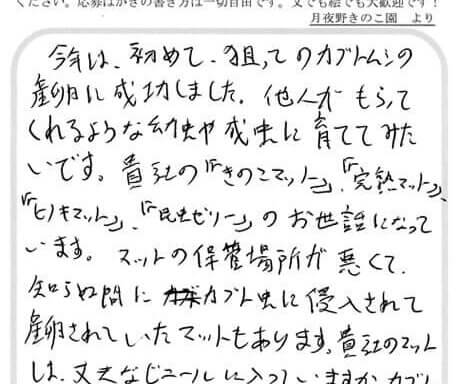 ください。応募はがきの書き方は一切自由です。文でも絵でも大歓迎です！
月夜野きのこ園　より
今年は、初めて、狙ってのカブトムシの
産卵に成功しました。他人が もらって
くれるような幼虫や成虫に育ててみた
いです。貴社の「きのこマット」、「完熟マット」、
「ヒノキマット」、「昆虫ゼリー」のお世話になって
います。マットの保管場所が悪くて、
知らぬ間に カブト虫に侵入されて
産卵されていたマットもあります。貴社のマット
は、丈夫なビニールに入っていますが、カブ